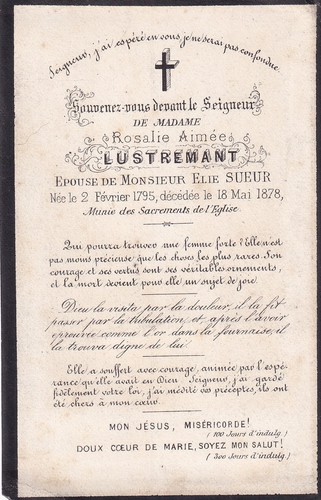 Seigneur, j'ai espéré en vous, je ne serai pas confondue
Souvenez-vous devant le Seigneur
DE MADAME
Rosalie Aimée
LUSTREMANT
EPOUSE DE MONSIEUR ELIE SUEUR
Née le 2 Février 1795, décédée le 18 Mai 1878,
Munie des Sacrements de l'Eglise.
Qui pourra trouver une femme forte? Elle n'est
pas moins précieuse que les choses les plus rares. Son
courage et ses vertus sont ses véritables ornements,
et la mort devient pour elle un sujet de joie.
Dieu la visita par la douleur, il la fit
passer par la tribulation, et après l'avoir
éprouvée comme l'or dans la fournaise, il
la trouva digne de lui.
Elle a souffert avec courage, animée par l'espé-
rance qu'elle avait en Dieu. Seigneur, j'ai gardé
fidèlement votre loi, j'ai médité vos préceptes, ils ont
été chers à mon cœur.
MON JÉSUS, MISÉRICORDE!
(100 Jours d'indulg.)
DOUX CŒUR DE MARIE, SOYEZ MON SALUT!
(300 Jours d'indulg.)